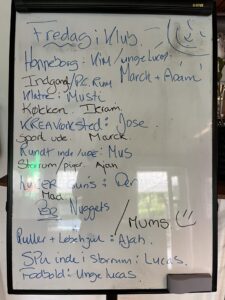 Fredag i Klub
Hoppeborg: Kim / unge Lucas
March + Adam
Indgang / P.C. Rum
Klatre: Musti
Køkken Ikram.
KREAVÆrksted: Jose
Sport ude. Marck
Rundt inde/ude: Mus
Storrum/ Ajan
Guns: Der
Mad
Nuggets / MUMS
Ruller + Løbehjul: Ajah.
SPil inde i Storrum: Lucas.
Fodbold: Unge Lucas.